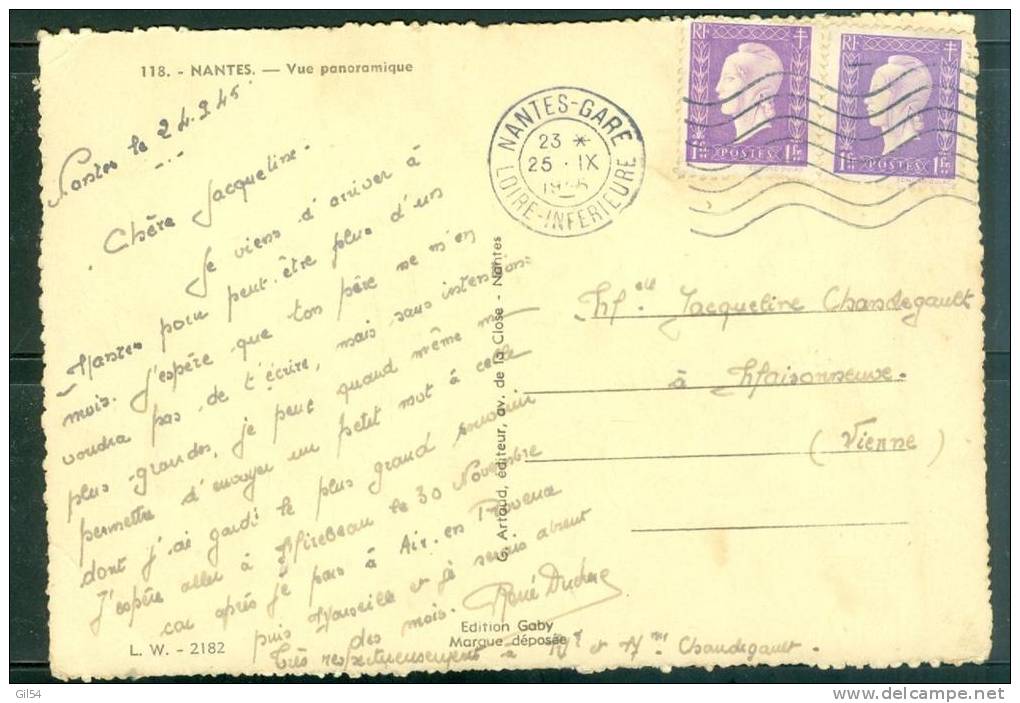 118. - NANTES. — Vue panoramique
Nantes le 24.9.45
Chère Jacqueline
Je viens d'arriver à
Nantes pour peut-être plus d'un
mois. J'espère que ton père ne m'en
voudra pas de t'écrire, mais sans intentions
plus grandes, je peux quand même me
permettre d'envoyer un petit mot à celle
dont j'ai gardé le plus grand souvenir
J'espère aller à Mirebeau le 30 Novembre
car après je pars à Aix-en Provence
puis Marseille et je serais absent
des mois. René
Très respectueusement à Mr et Mme Chandegault.
L. W. - 2182
Edition Gaby
Marque déposée
G. Artaud, éditeur, av. de la Close - Nantes
NANTES-GARE
23 *
25 · IX
1945
LOIRE-INFERIEURE
RF
1F
POSTES
1F
RF
1F
POSTES
1F
Melle Jacqueline Chandegault
à Maisonneuve.
(Vienne)
Gil54
www.delcampe.net